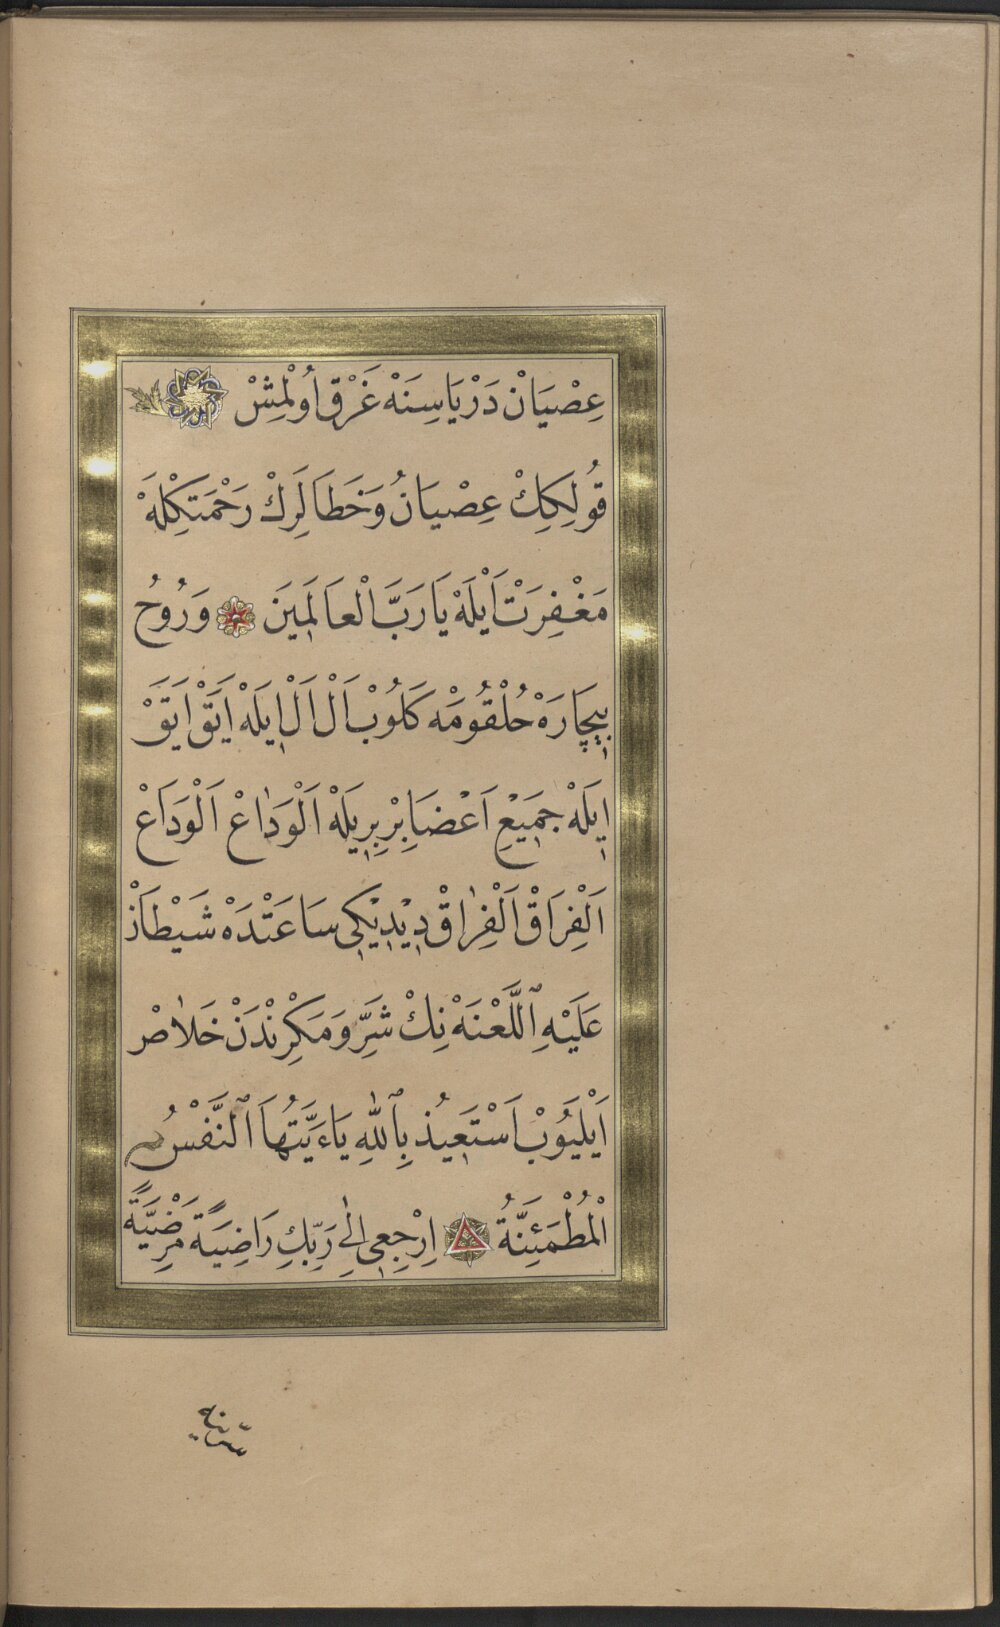 عِصْيَانْ دَرْيَاسِنَهْ غَرْقْ أُولْمِشْ
قُولِكِكْ عِصْيَانُ وَخَطَالَرِكْ رَحْمَتِكْلَهْ
مَغْفِرَتْ اَيْلَهْ يَا رَبَّ الْعَالَمِينَ وَرُوحُ
بِيچَارَهْ حُلْقُومْه كَلُوبْ اَلْ اَلْ اِيلَهْ اَيَقْ اَيَقْ
اِيلَهْ جَمِيْعِ اَعْضَا بِرْبِرِيلَهْ اَلْوَدَاعْ اَلْوَدَاعْ
اَلْفِرَاقْ اَلْفِرَاقْ دِيْدِيْكِى سَاعَتْدَهْ شَيْطَانْ
عَلَيْهِ ٱللَّعْنَهْ نِكْ شَرِّ وَمَكْرِنْدَنْ خَلَاصْ
اَيْلَيُوبْ اَسْتَعِيذُ بِٱللّٰهِ يَاءَيَّتُهَا ٱلنَّفْسُ
ٱلْمُطْمَئِنَّةُ اِرْجِعِى اِلٰى رَبِّكِ رَاضِيَةً مَرْضِيَّةً